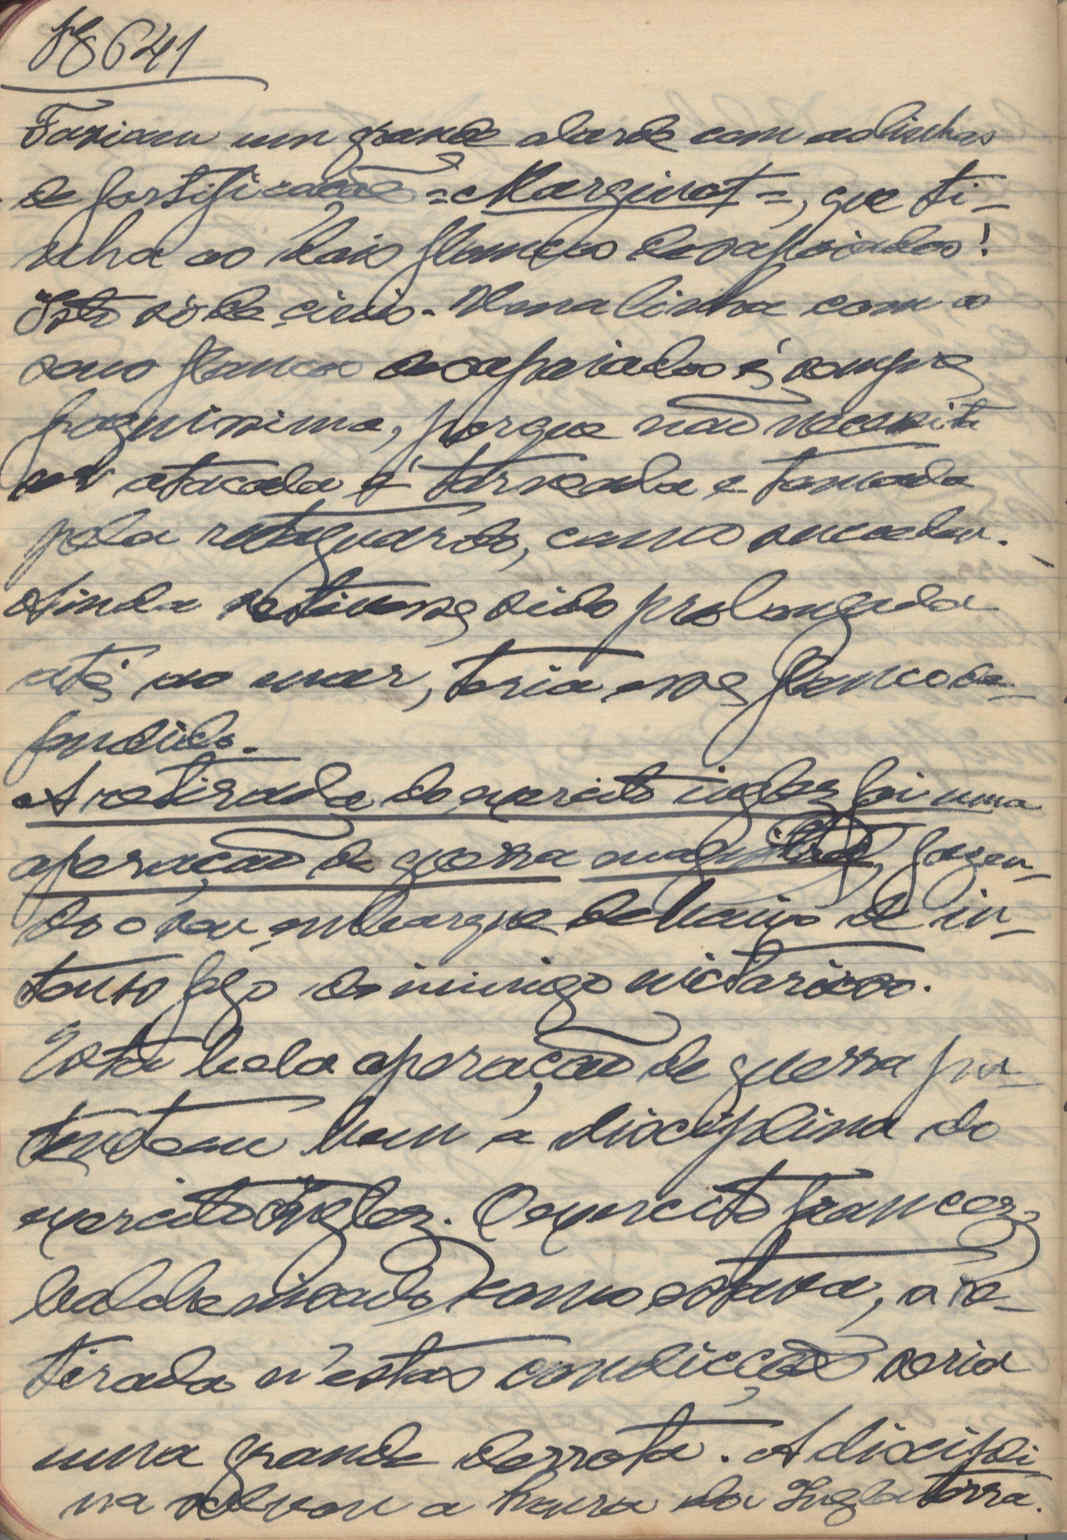 fg 641
Faziam um grande alarde com as linhas
de fortificação =Marginot=, que ti-
nha os dois flancos desapoiados!
Isto só de Uma linha com o
seus flancos desapoiados é sempre
porque não necessita
ser atacada é torneada e tomada
pela retaguarda, como sucedeu.
Ainda se tivesse sido prolongada
até ao mar, teria esse flanco de-
fendido.
A retirada do exercito inglez foi uma
operação de guerra magistral, fazen-
do o seu embarque debaixo de in-
tenso fogo do inimigo victorioso.
Esta bela operação de guerra pa-
tenteou bem a disciplina do
exercito inglez. O exercito francez,
como estava, a re-
tirada n'estas condicções seria
uma grande derrota. A discipli-
na salvou a honra da Inglaterra.